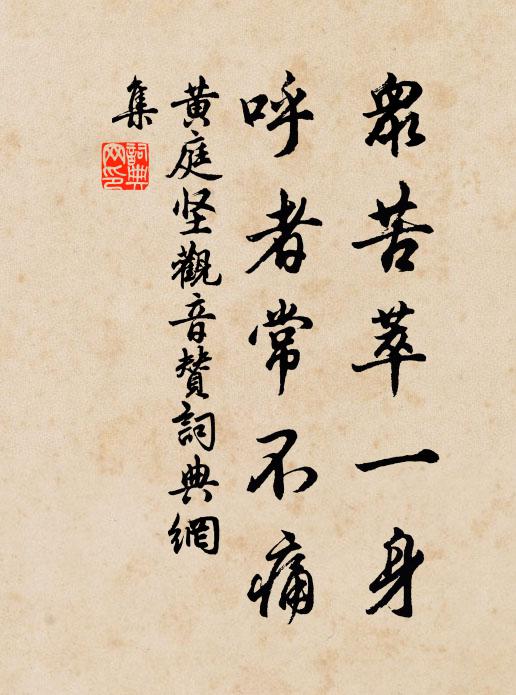 眾苦萃一身
呼者常不痛
黄庭坚觀音赞詞典網
集
詞典
网印